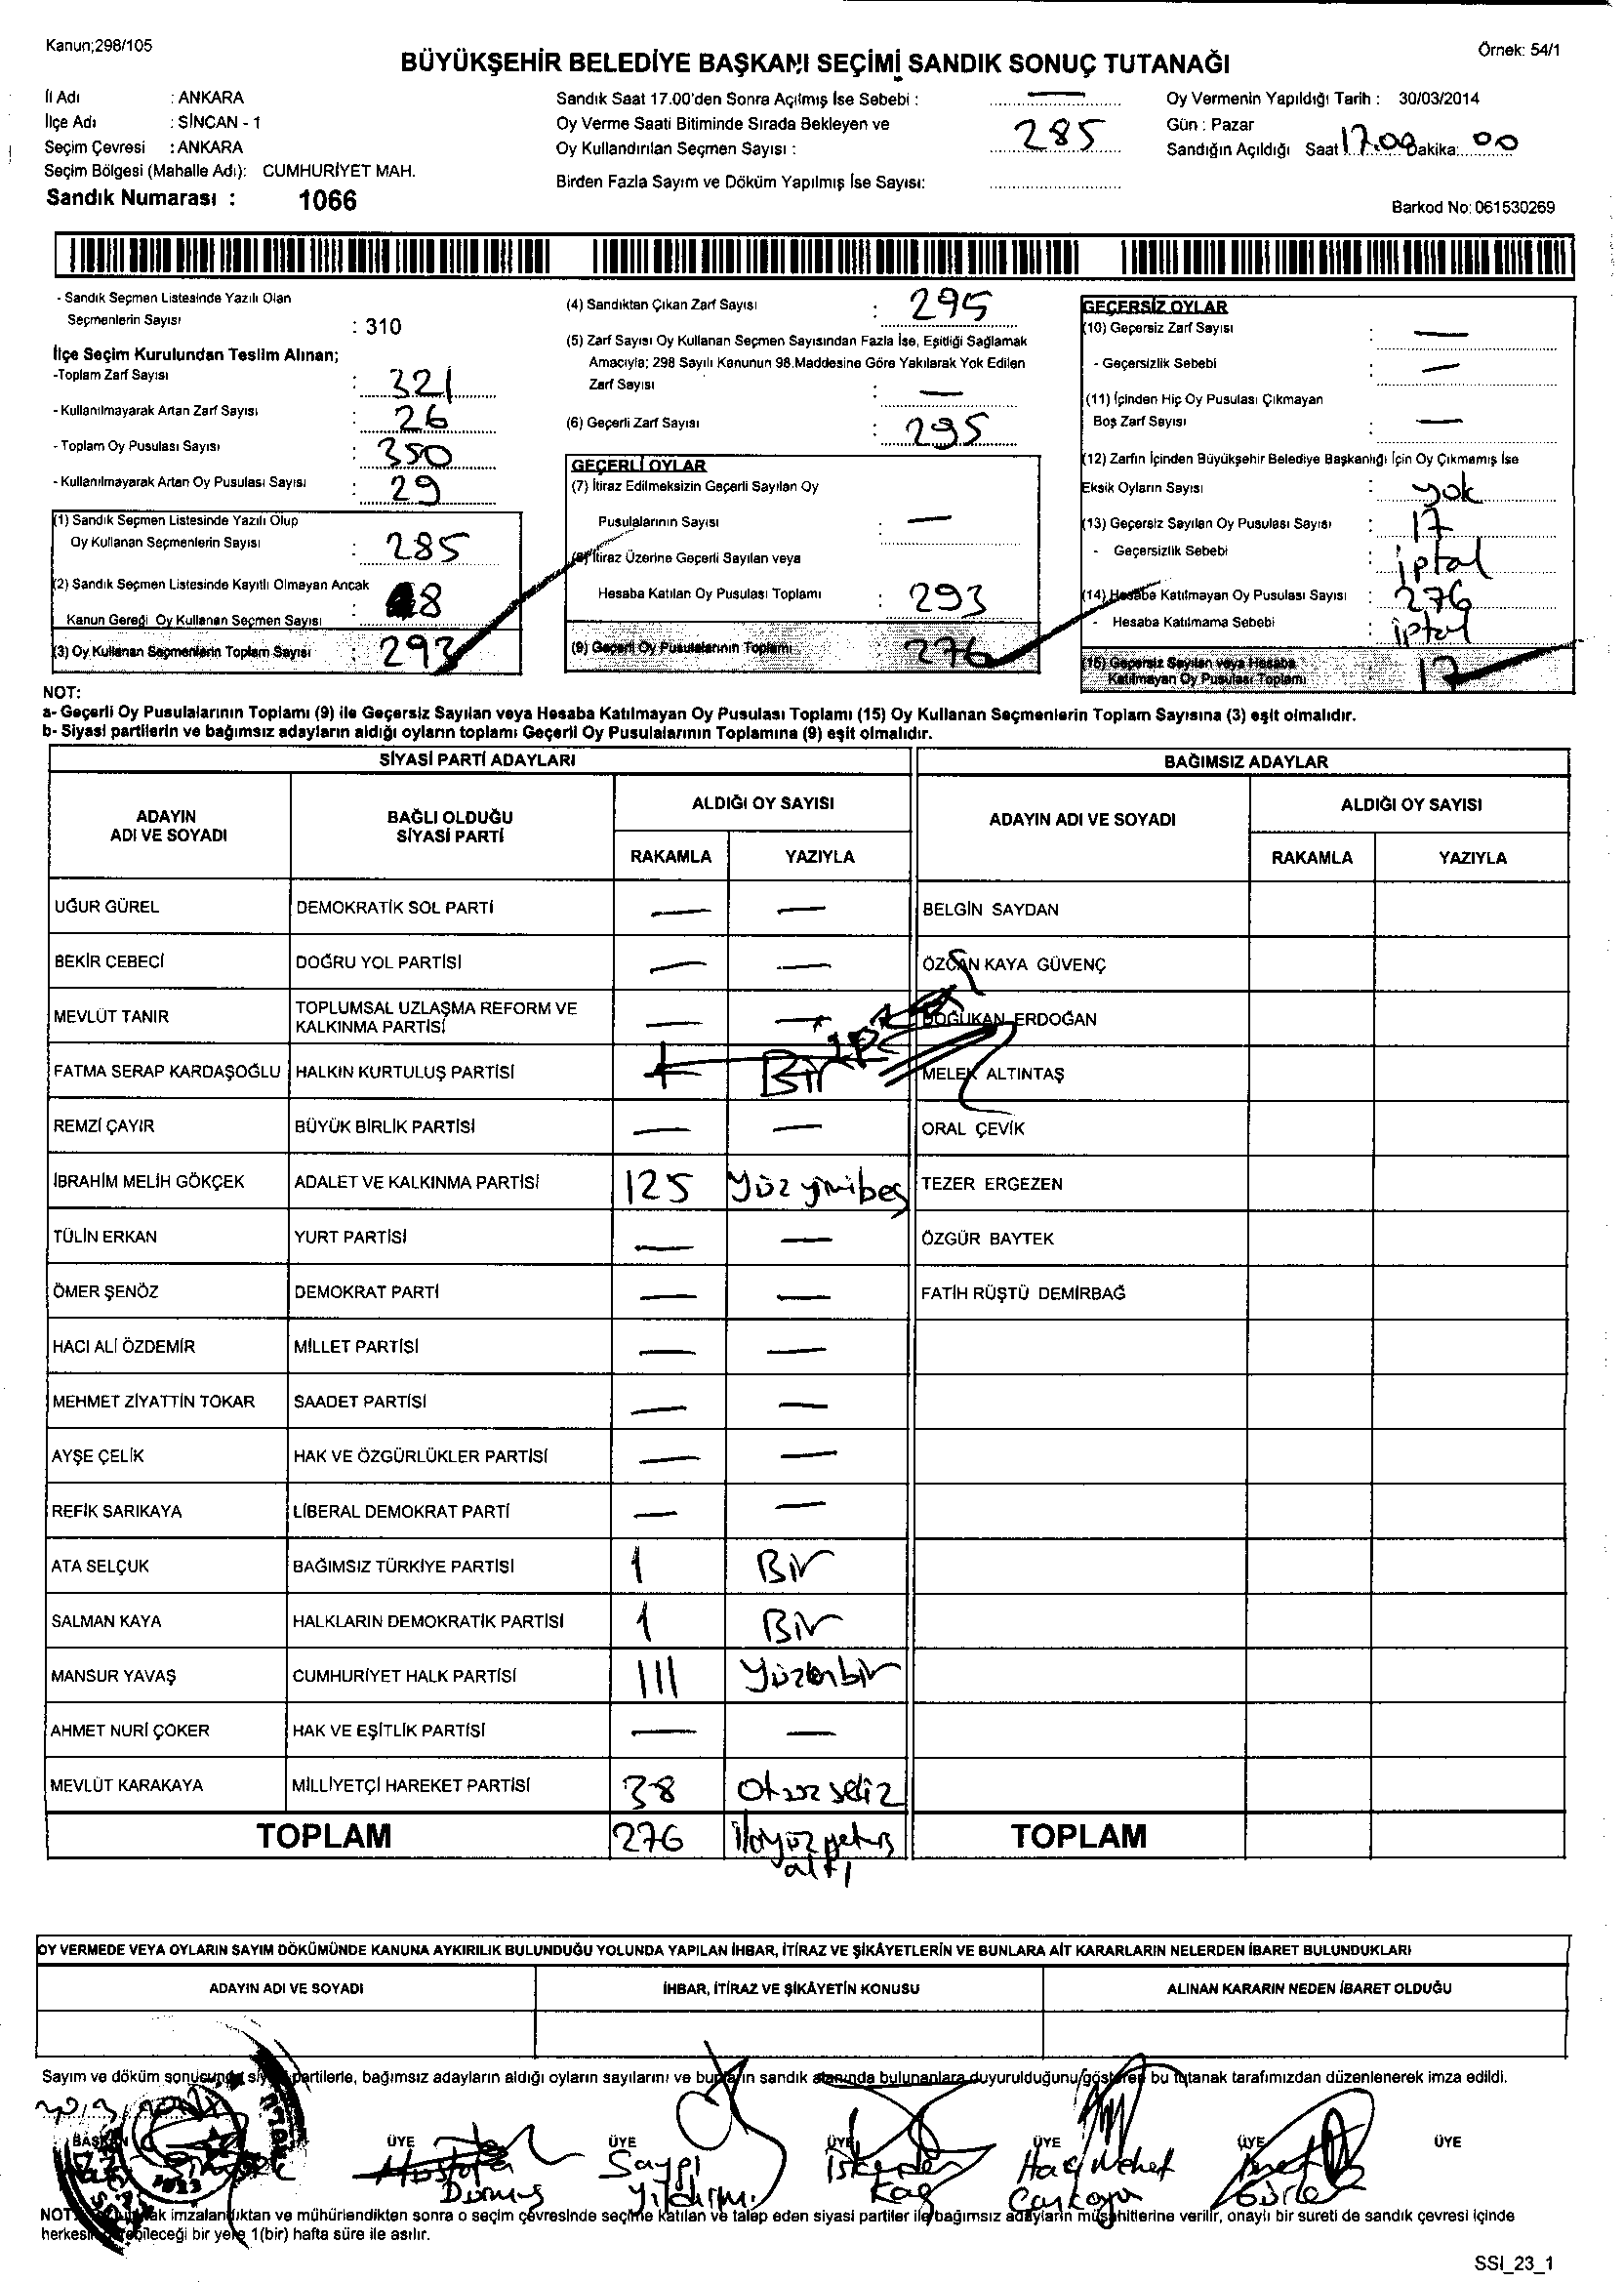 Kanun;298/105
Örnek: 54/1
BÜYÜKŞEHİR BELEDİYE BAŞKANI SEÇİMİ SANDIK SONUÇ TUTANAĞI
İl Adı : ANKARA
İlçe Adı : SİNCAN - 1
Seçim Çevresi : ANKARA
Seçim Bölgesi (Mahalle Adı): CUMHURİYET MAH.
Sandık Numarası : 1066
Sandık Saat 17.00'den Sonra Açılmış İse Sebebi : —
Oy Verme Saati Bitiminde Sırada Bekleyen ve
Oy Kullandırılan Seçmen Sayısı : 285
Birden Fazla Sayım ve Döküm Yapılmış İse Sayısı:
Oy Vermenin Yapıldığı Tarih : 30/03/2014
Gün : Pazar
Sandığın Açıldığı Saat 17.00 Dakika: 00
Barkod No: 061530269
- Sandık Seçmen Listesinde Yazılı Olan
Seçmenlerin Sayısı : 310
İlçe Seçim Kurulundan Teslim Alınan;
-Toplam Zarf Sayısı : 321
- Kullanılmayarak Artan Zarf Sayısı : 26
- Toplam Oy Pusulası Sayısı : 350
- Kullanılmayarak Artan Oy Pusulası Sayısı : 29
(1) Sandık Seçmen Listesinde Yazılı Olup
Oy Kullanan Seçmenlerin Sayısı : 285
(2) Sandık Seçmen Listesinde Kayıtlı Olmayan Ancak
Kanun Gereği Oy Kullanan Seçmen Sayısı : 8
(3) Oy Kullanan Seçmenlerin Toplam Sayısı : 293
(4) Sandıktan Çıkan Zarf Sayısı : 295
(5) Zarf Sayısı Oy Kullanan Seçmen Sayısından Fazla İse, Eşitliği Sağlamak
Amacıyla; 298 Sayılı Kanunun 98.Maddesine Göre Yakılarak Yok Edilen
Zarf Sayısı : —
(6) Geçerli Zarf Sayısı : 295
GEÇERLİ OYLAR
(7) İtiraz Edilmeksizin Geçerli Sayılan Oy
Pusulalarının Sayısı : —
(8) İtiraz Üzerine Geçerli Sayılan veya
Hesaba Katılan Oy Pusulası Toplamı : 293
(9) Geçerli Oy Pusulalarının Toplamı : 276
GEÇERSİZ OYLAR
(10) Geçersiz Zarf Sayısı : —
- Geçersizlik Sebebi : —
(11) İçinden Hiç Oy Pusulası Çıkmayan
Boş Zarf Sayısı : —
(12) Zarfın İçinden Büyükşehir Belediye Başkanlığı İçin Oy Çıkmamış İse
Eksik Oyların Sayısı : yok
(13) Geçersiz Sayılan Oy Pusulası Sayısı : 17
- Geçersizlik Sebebi : iptal
(14) Hesaba Katılmayan Oy Pusulası Sayısı : 276
- Hesaba Katılmama Sebebi : iptal
(15) Geçersiz Sayılan veya Hesaba
Katılmayan Oy Pusulası Toplamı 17
NOT:
a- Geçerli Oy Pusulalarının Toplamı (9) ile Geçersiz Sayılan veya Hesaba Katılmayan Oy Pusulası Toplamı (15) Oy Kullanan Seçmenlerin Toplam Sayısına (3) eşit olmalıdır.
b- Siyasi partilerin ve bağımsız adayların aldığı oyların toplamı Geçerli Oy Pusulalarının Toplamına (9) eşit olmalıdır.
SİYASİ PARTİ ADAYLARI
BAĞIMSIZ ADAYLAR
ADAYIN
ADI VE SOYADI
BAĞLI OLDUĞU
SİYASİ PARTİ
ALDIĞI OY SAYISI
RAKAMLA YAZIYLA
ADAYIN ADI VE SOYADI
ALDIĞI OY SAYISI
RAKAMLA YAZIYLA
UĞUR GÜREL DEMOKRATİK SOL PARTİ — — BELGİN SAYDAN
BEKİR CEBECİ DOĞRU YOL PARTİSİ — — ÖZCAN KAYA GÜVENÇ
MEVLÜT TANIR TOPLUMSAL UZLAŞMA REFORM VE KALKINMA PARTİSİ — — DOĞUKAN ERDOĞAN
FATMA SERAP KARDAŞOĞLU HALKIN KURTULUŞ PARTİSİ Bir iptal MELEK ALTINTAŞ
REMZİ ÇAYIR BÜYÜK BİRLİK PARTİSİ — — ORAL ÇEVİK
İBRAHİM MELİH GÖKÇEK ADALET VE KALKINMA PARTİSİ 125 yüzyirmibeş TEZER ERGEZEN
TÜLİN ERKAN YURT PARTİSİ — — ÖZGÜR BAYTEK
ÖMER ŞENÖZ DEMOKRAT PARTİ — — FATİH RÜŞTÜ DEMİRBAĞ
HACI ALİ ÖZDEMİR MİLLET PARTİSİ — —
MEHMET ZİYATTİN TOKAR SAADET PARTİSİ — —
AYŞE ÇELİK HAK VE ÖZGÜRLÜKLER PARTİSİ — —
REFİK SARIKAYA LİBERAL DEMOKRAT PARTİ — —
ATA SELÇUK BAĞIMSIZ TÜRKİYE PARTİSİ 1 Bir
SALMAN KAYA HALKLARIN DEMOKRATİK PARTİSİ 1 Bir
MANSUR YAVAŞ CUMHURİYET HALK PARTİSİ 111 Yüzonbir
AHMET NURİ ÇOKER HAK VE EŞİTLİK PARTİSİ — —
MEVLÜT KARAKAYA MİLLİYETÇİ HAREKET PARTİSİ 38 Otuz sekiz
TOPLAM 276 ikiyüz yetmiş altı TOPLAM
OY VERMEDE VEYA OYLARIN SAYIM DÖKÜMÜNDE KANUNA AYKIRILIK BULUNDUĞU YOLUNDA YAPILAN İHBAR, İTİRAZ VE ŞİKÂYETLERİN VE BUNLARA AİT KARARLARIN NELERDEN İBARET BULUNDUKLARI
ADAYIN ADI VE SOYADI İHBAR, İTİRAZ VE ŞİKÂYETİN KONUSU ALINAN KARARIN NEDEN İBARET OLDUĞU
Sayım ve döküm sonucunda siyasi partilerle, bağımsız adayların aldığı oyların sayılarını ve bunların sandık alanında bulunanlara duyurulduğunu gösteren bu tutanak tarafımızdan düzenlenerek imza edildi.
BAŞKAN ÜYE ÜYE ÜYE ÜYE ÜYE ÜYE
Mustafa Durmuş
Saygı Yıldırım
İskender Kağ
Hacı Mehmet Çankaya
Gürle
NOT: Tutanak imzalandıktan ve mühürlendikten sonra o seçim çevresinde seçime katılan ve talep eden siyasi partiler ile bağımsız adayların müşahitlerine verilir, onaylı bir sureti de sandık çevresi içinde
herkesin görebileceği bir yere 1(bir) hafta süre ile asılır.
SSI_23_1